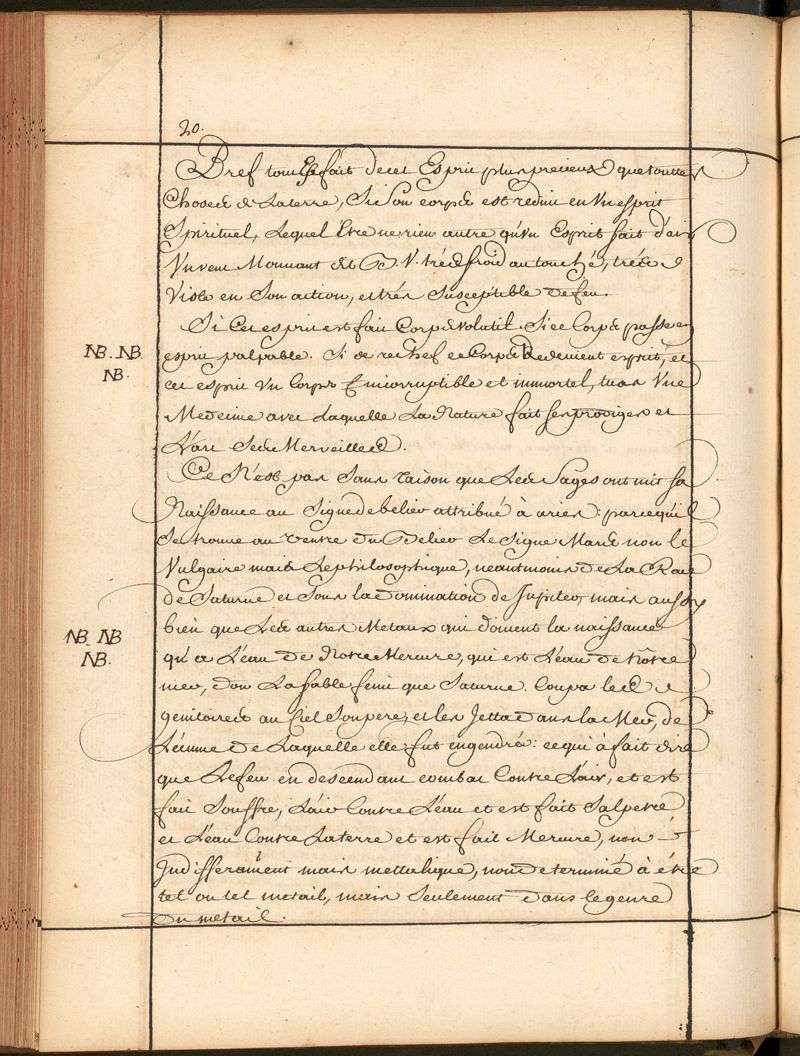 20.
Bref tout Est fait de cet Esprit plus precieux que toutte
Chosed de La terre, Si Son corpd est reduit en Un esprit
Spirituel, Lequel Etre ne rien autre qu'un Esprit fait d'air
Un vent Mouuant et V. tréd froid au touché, tréd
Viste en Son action, et trés Susceptible de feu.
Si Cet esprit est fait Corpd volatil. Si ce Corpd passe en
esprit palpable. Si de rechef ce Corpd Redevient esprit, et
NB. NB.
NB.
cet esprit Un Corps Et incorruptible et immortel, tu as Une
Medecine avec Laquelle La Nature fait ses prodiges et
L'art Sed Merveilled.
Ce N'est pas Sans raison que Led Sages ont mit sa
Naissance au Signe de belier attribué à aries: parcequ'il
Se trouue au Ventre du Belier Le Signe Mard non le
Vulgaire maid Le philosophique, neantmoins de La Race
de Saturne et Sous la domination de Jupiter, mais aussy
NB. NB
NB.
bien que Led autres Metaux qui doiuent la naissance
qu'a L'eau de Notre Mercure, qui est L'eau de Nôtre
mer, don La fable feint que Saturne. Coupa led
genitoired au Ciel Son pere, et les Jetta dans la Mer, de
L'ecume de Laquelle elle fut engendrée: ce qui à fait dire
que Le feu en descendant combat Contre L'air, et est
fait Souffre, L'air Contre L'eau et est fait Salpetre
et L'eau Contre La terre et est fait Mercure, non
Indifferâment mais mettalique, non determiné à étre
tel ou tel metail, mais Seulement dans le genre
du metail.